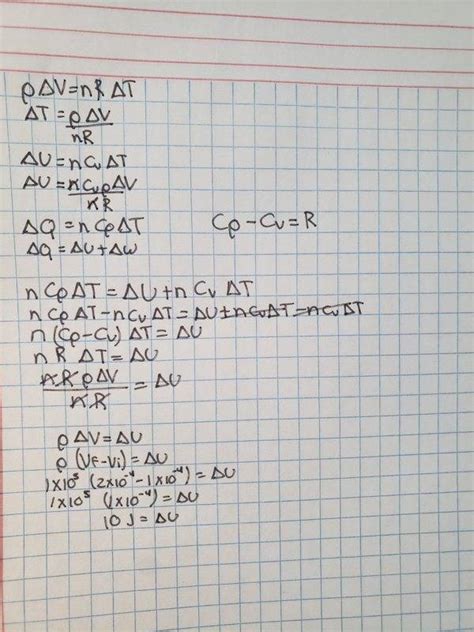 ρΔV=nRΔT
ΔT=ρΔV/nR
ΔU=nCvΔT
ΔU=nCvρΔV/nR
ΔQ=nCρΔT Cρ-Cv=R
ΔQ=ΔU+ΔW
nCρΔT=ΔU+nCvΔT
nCρΔT-nCvΔT=ΔU+nCvΔT=nCvΔT
n(Cρ-Cv)ΔT=ΔU
nRΔT=ΔU
nRρΔV/nR=ΔU
ρΔV=ΔU
ρ(Vf-Vi)=ΔU
1x10⁵(2x10⁻⁴-1x10⁻⁴)=ΔU
1x10⁵(1x10⁻⁴)=ΔU
10J=ΔU